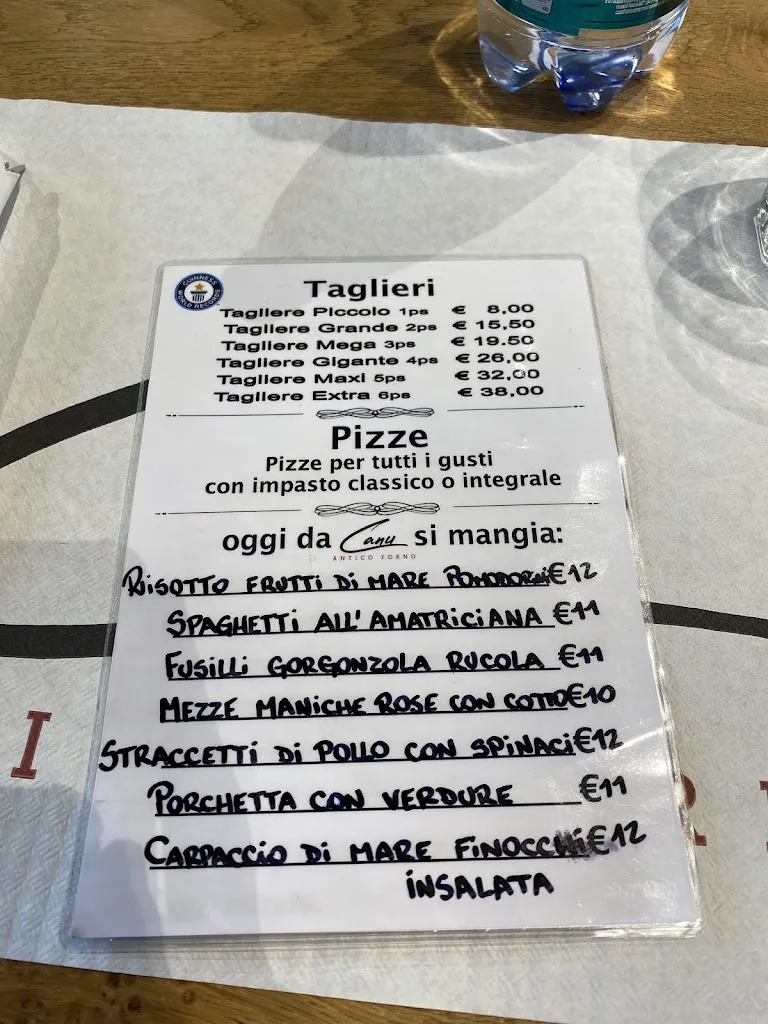 GUINNESS WORLD RECORDS
Taglieri
Tagliere Piccolo 1ps € 8,00
Tagliere Grande 2ps € 15,50
Tagliere Mega 3ps € 19.50
Tagliere Gigante 4ps € 26,00
Tagliere Maxi 5ps € 32,00
Tagliere Extra 6ps € 38,00
Pizze
Pizze per tutti i gusti
con impasto classico o integrale
oggi da Canu si mangia:
ANTICO FORNO
RISOTTO FRUTTI DI MARE POMODORINI €12
SPAGHETTI ALL'AMATRICIANA €11
FUSILLI GORGONZOLA RUCOLA €11
MEZZE MANICHE ROSE CON COTTO €10
STRACCETTI DI POLLO CON SPINACI €12
PORCHETTA CON VERDURE €11
CARPACCIO DI MARE FINOCCHI €12
INSALATA
I
R